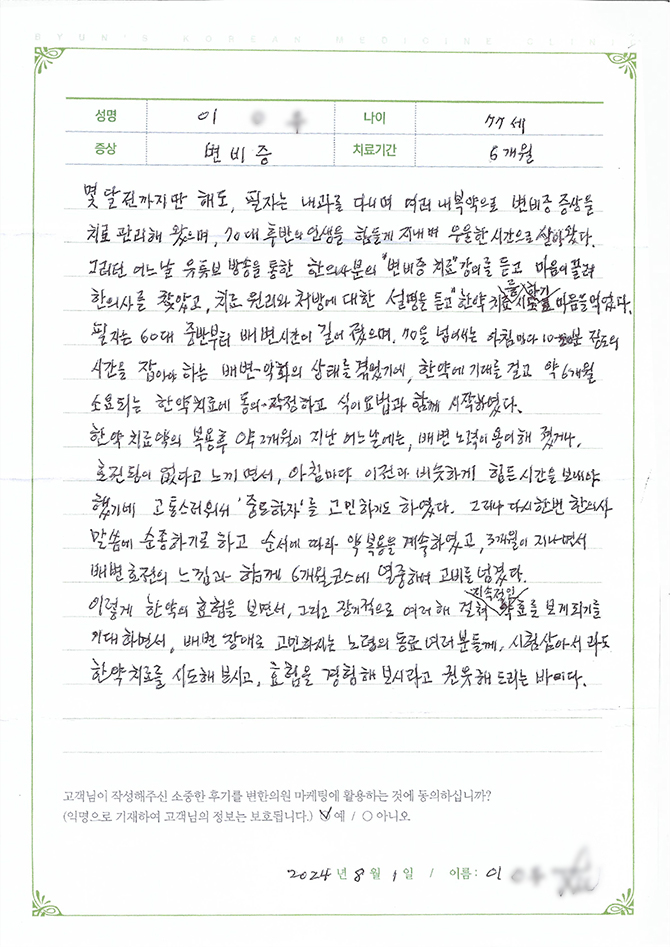 BYUN'S KOREAN MEDICINE CLINIC
성명 이 나이 77세
증상 변비증 치료기간 6개월
몇 달 전까지만 해도, 필자는 내과를 다니며 여러 내복약으로 변비증 증상을
치료 관리해 왔으며, 70대 후반의 인생을 힘들게 지내며 우울한 시간으로 살아왔다.
그러던 어느날 유튜브 방송을 통한 한의사분의 "변비증 치료" 강의를 듣고 마음이 끌려
한의사를 찾았고, 치료 원리와 처방에 대한 설명을 듣고 한약 치료 마음을 먹었다.
필자는 60대 중반부터 배변시간이 길어졌으며, 70을 넘어서는 아침마다 정도의
시간을 잡아야 하는 배변-악화의 상태를 겪었기에, 한약에 기대를 걸고 약 6개월
소요되는 한약치료에 동의·작정하고 식이요법과 함께 시작하였다.
한약 치료약의 복용후 약 2개월이 지난 어느날에는, 배변 노력이 용이해 졌거나,
호전됨이 없다고 느끼면서, 아침마다 이전과 비슷하게 힘든 시간을 보내야
했기에 고통스러워서 '중도하자'를 고민하기도 하였다. 그러나 다시한번 한의사
말씀에 순종하기로 하고 순서에 따라 약 복용을 계속하였고, 3개월이 지나면서
배변 호전의 느낌과 함께 6개월 코스에 열중하여 고비를 넘겼다.
이렇게 한약의 효험을 보면서, 그리고 장기적으로 여러해 걸쳐 지속적인 약효를 보게 되기를
기대하면서, 배변 장애로 고민하시는 노령의 동료 여러분들께, 시험삼아서라도
한약치료를 시도해 보시고, 효험을 경험해 보시라고 권유해 드리는 바이다.
고객님이 작성해주신 소중한 후기를 변한의원 마케팅에 활용하는 것에 동의하십니까?
(익명으로 기재하여 고객님의 정보는 보호됩니다.) ○ 예 / ○ 아니오
2024년 8월 1일 / 이름: 이